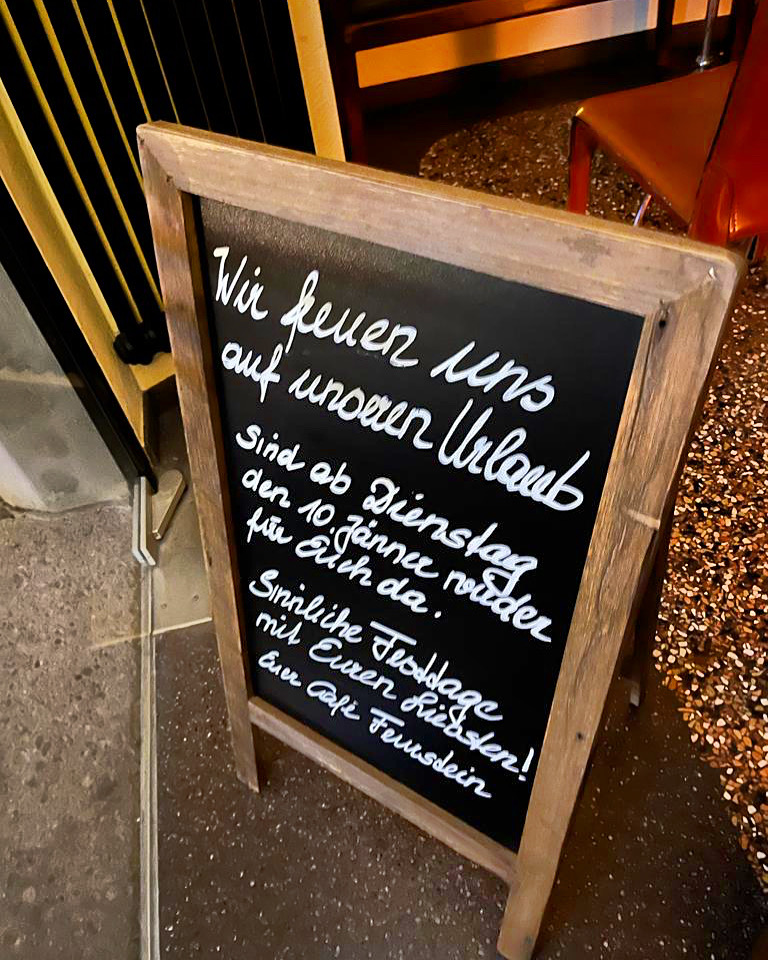 Wir freuen uns
auf unseren Urlaub
Sind ab Dienstag
den 10. Jänner wieder
für Euch da.
Sinnliche Festtage
mit Euren Liebsten!
Euer Café Feuerstein